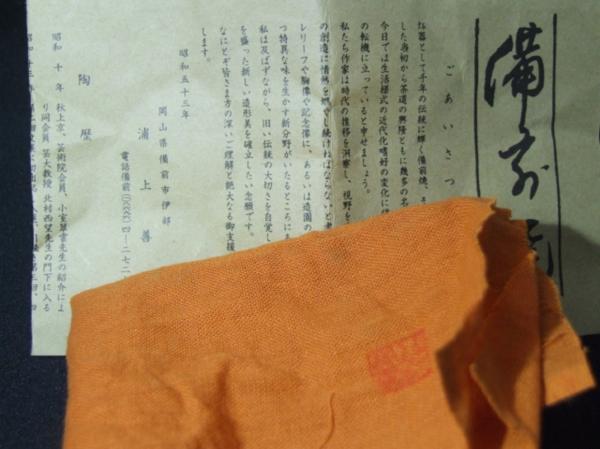 備前焼
ごあいさつ
器として千年の伝統に輝く備前焼、そ
した当初から茶道の興隆とともに幾多の名
今日では生活様式の近代化嗜好の変化に
の転機に立っていると申せましょう。
私たち作家は時代の推移を洞察し、視野を
の創造に情熱を燃やし続けねばならないと考
レリーフや陶像や記念像に、あるいは造園の
つ特異な味を生かす新分野がいたるところにあ
私は及ばずながら、旧い伝統の大切さを自覚し
を盛った新しい造形美を確立したい念願です。
なにとぞ皆さま方の深いご理解と絶大なる御支援
します。
昭和五十三年
岡山県備前市伊部
浦上善
電話備前
陶歴
昭和十年 秋上京、芸術院会員、小室翠雲先生の紹介によ
り同会員 芸大教授 北村西望先生の門下に入る